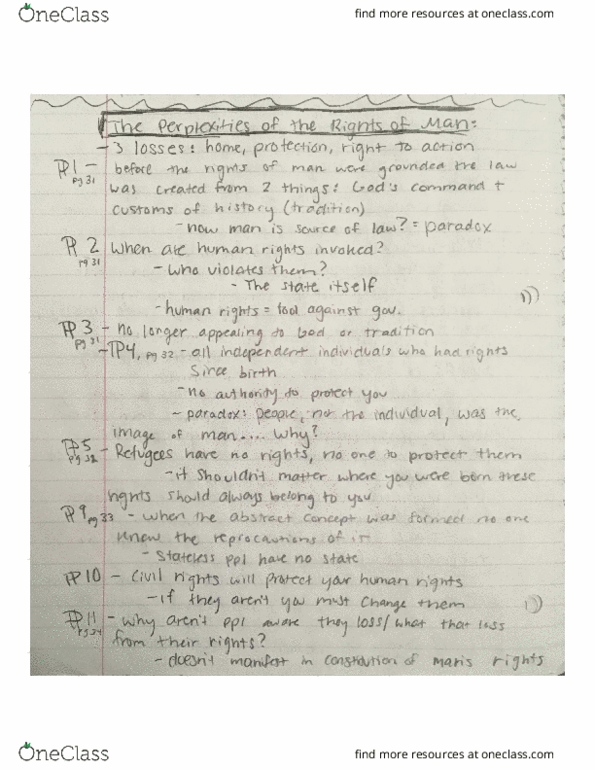 OneClass
find more resources at oneclass.com
The Perplexities of the Rights of Man:
- 3 losses: home, protection, right to action
PP1 - before the rights of man were grounded the law
pg 31
was created from 2 things: God's command +
customs of history (tradition)
- now man is source of law? = paradox
PP 2 When are human rights invoked?
pg 31
- who violates them?
- The state itself
- human rights = tool against gov.
PP 3 - no longer appealing to God or tradition
pg 31
- PP4, pg 32 - all independent individuals who had rights
since birth
- no authority to protect you
- paradox: people, not the individual, was the
image of man.... Why?
PP5 - Refugees have no rights, no one to protect them
pg 32
- it shouldn't matter where you were born these
rights should always belong to you
PP 9 pg 33 - when the abstract concept was formed no one
knew the reprocautions of it
- Stateless ppl have no state
PP 10 - Civil rights will protect your human rights
- if they aren't you must change them
PP 11 - why aren't ppl aware they loss/what that loss
pg 34
from their rights?
- doesn't manifest in constitution of man's rights
OneClass
find more resources at oneclass.com